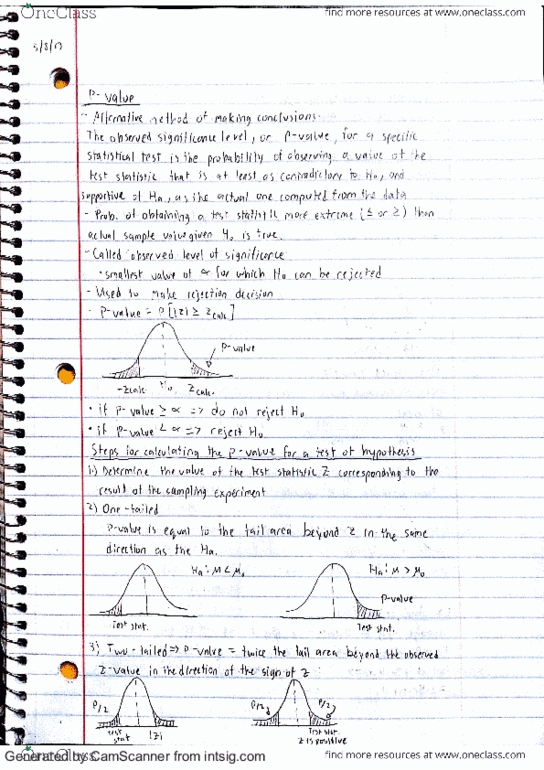 OneClass
find more resources at www.oneclass.com
5/8/17
P-value
- Alternative method of making conclusions.
The observed significance level, or P-value, for a specific
statistical test is the probability of observing a value of the
test statistic that is at least as contradictory to Ho, and
supportive of Ha, as the actual one computed from the data
- Prob. of obtaining a test statistic more extreme (≤ or ≥) than
actual sample value given Ho is true.
- Called observed level of significance
• smallest value of α for which Ho can be rejected
- Used to make rejection decision
- P-value = P[|z| ≥ zcalc]
P-value
-zcalc Ho zcalc.
• if P-value ≥ α => do not reject Ho
• if P-value < α => reject Ho
Steps for calculating the P-value for a test of hypothesis
1.) Determine the value of the test statistic z corresponding to the
result of the sampling experiment
2) One-tailed
P-value is equal to the tail area beyond z in the same
direction as the Ha.
Ha: μ < μo
Ha: μ > μo
P-value
Test stat.
Test stat.
3) Two-tailed => P-value = twice the tail area beyond the observed
z-value in the direction of the sign of z
P/2
P/2
P/2
Test stat
|z|
Test stat.
z is positive
Generated by CamScanner from intsig.com
OneClass
find more resources at www.oneclass.com